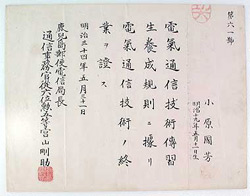 第六一號
小原國芳
明治二十年四月八日生
電氣通信技術傳習
生養成規則ニ據リ
電氣通信技術ノ終
業ヲ證ス
明治三十四年五月三十一日
鹿兒島郵便電信局長
通信事務官從六位勳五等宮山剛助